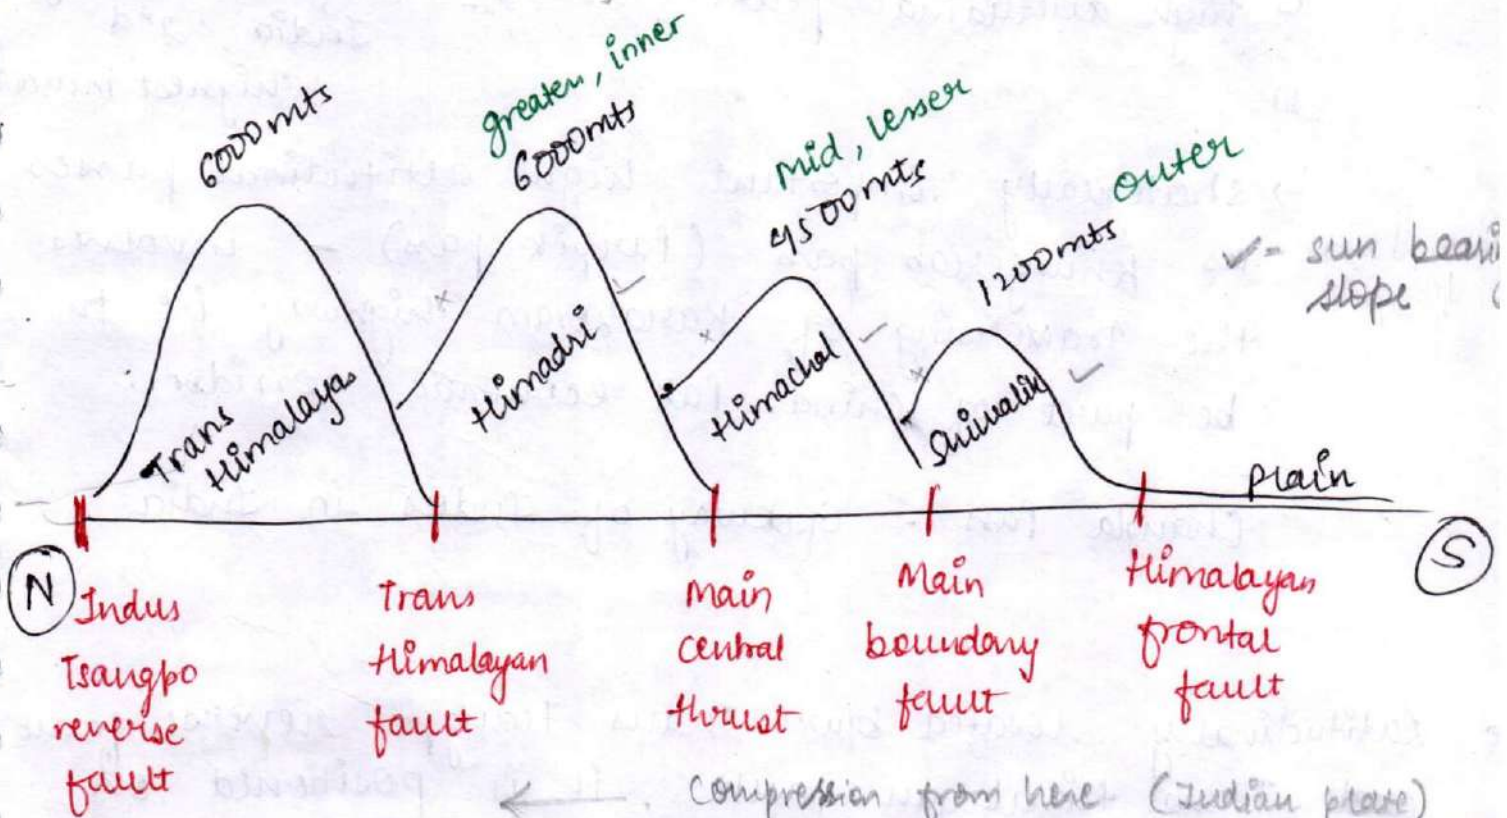 6000mts
greater, inner
6000mts
mid, lesser
4500mts
outer
1200mts
✓- sun beari
slope
Trans
Himalaya
Himadri
Himachal
Shiwalik
Plain
N
S
Indus
Tsangpo
reverse
fault
Trans
Himalayan
fault
Main
central
thrust
Main
boundary
fault
Himalayan
frontal
fault
← Compression from here (Indian plate)